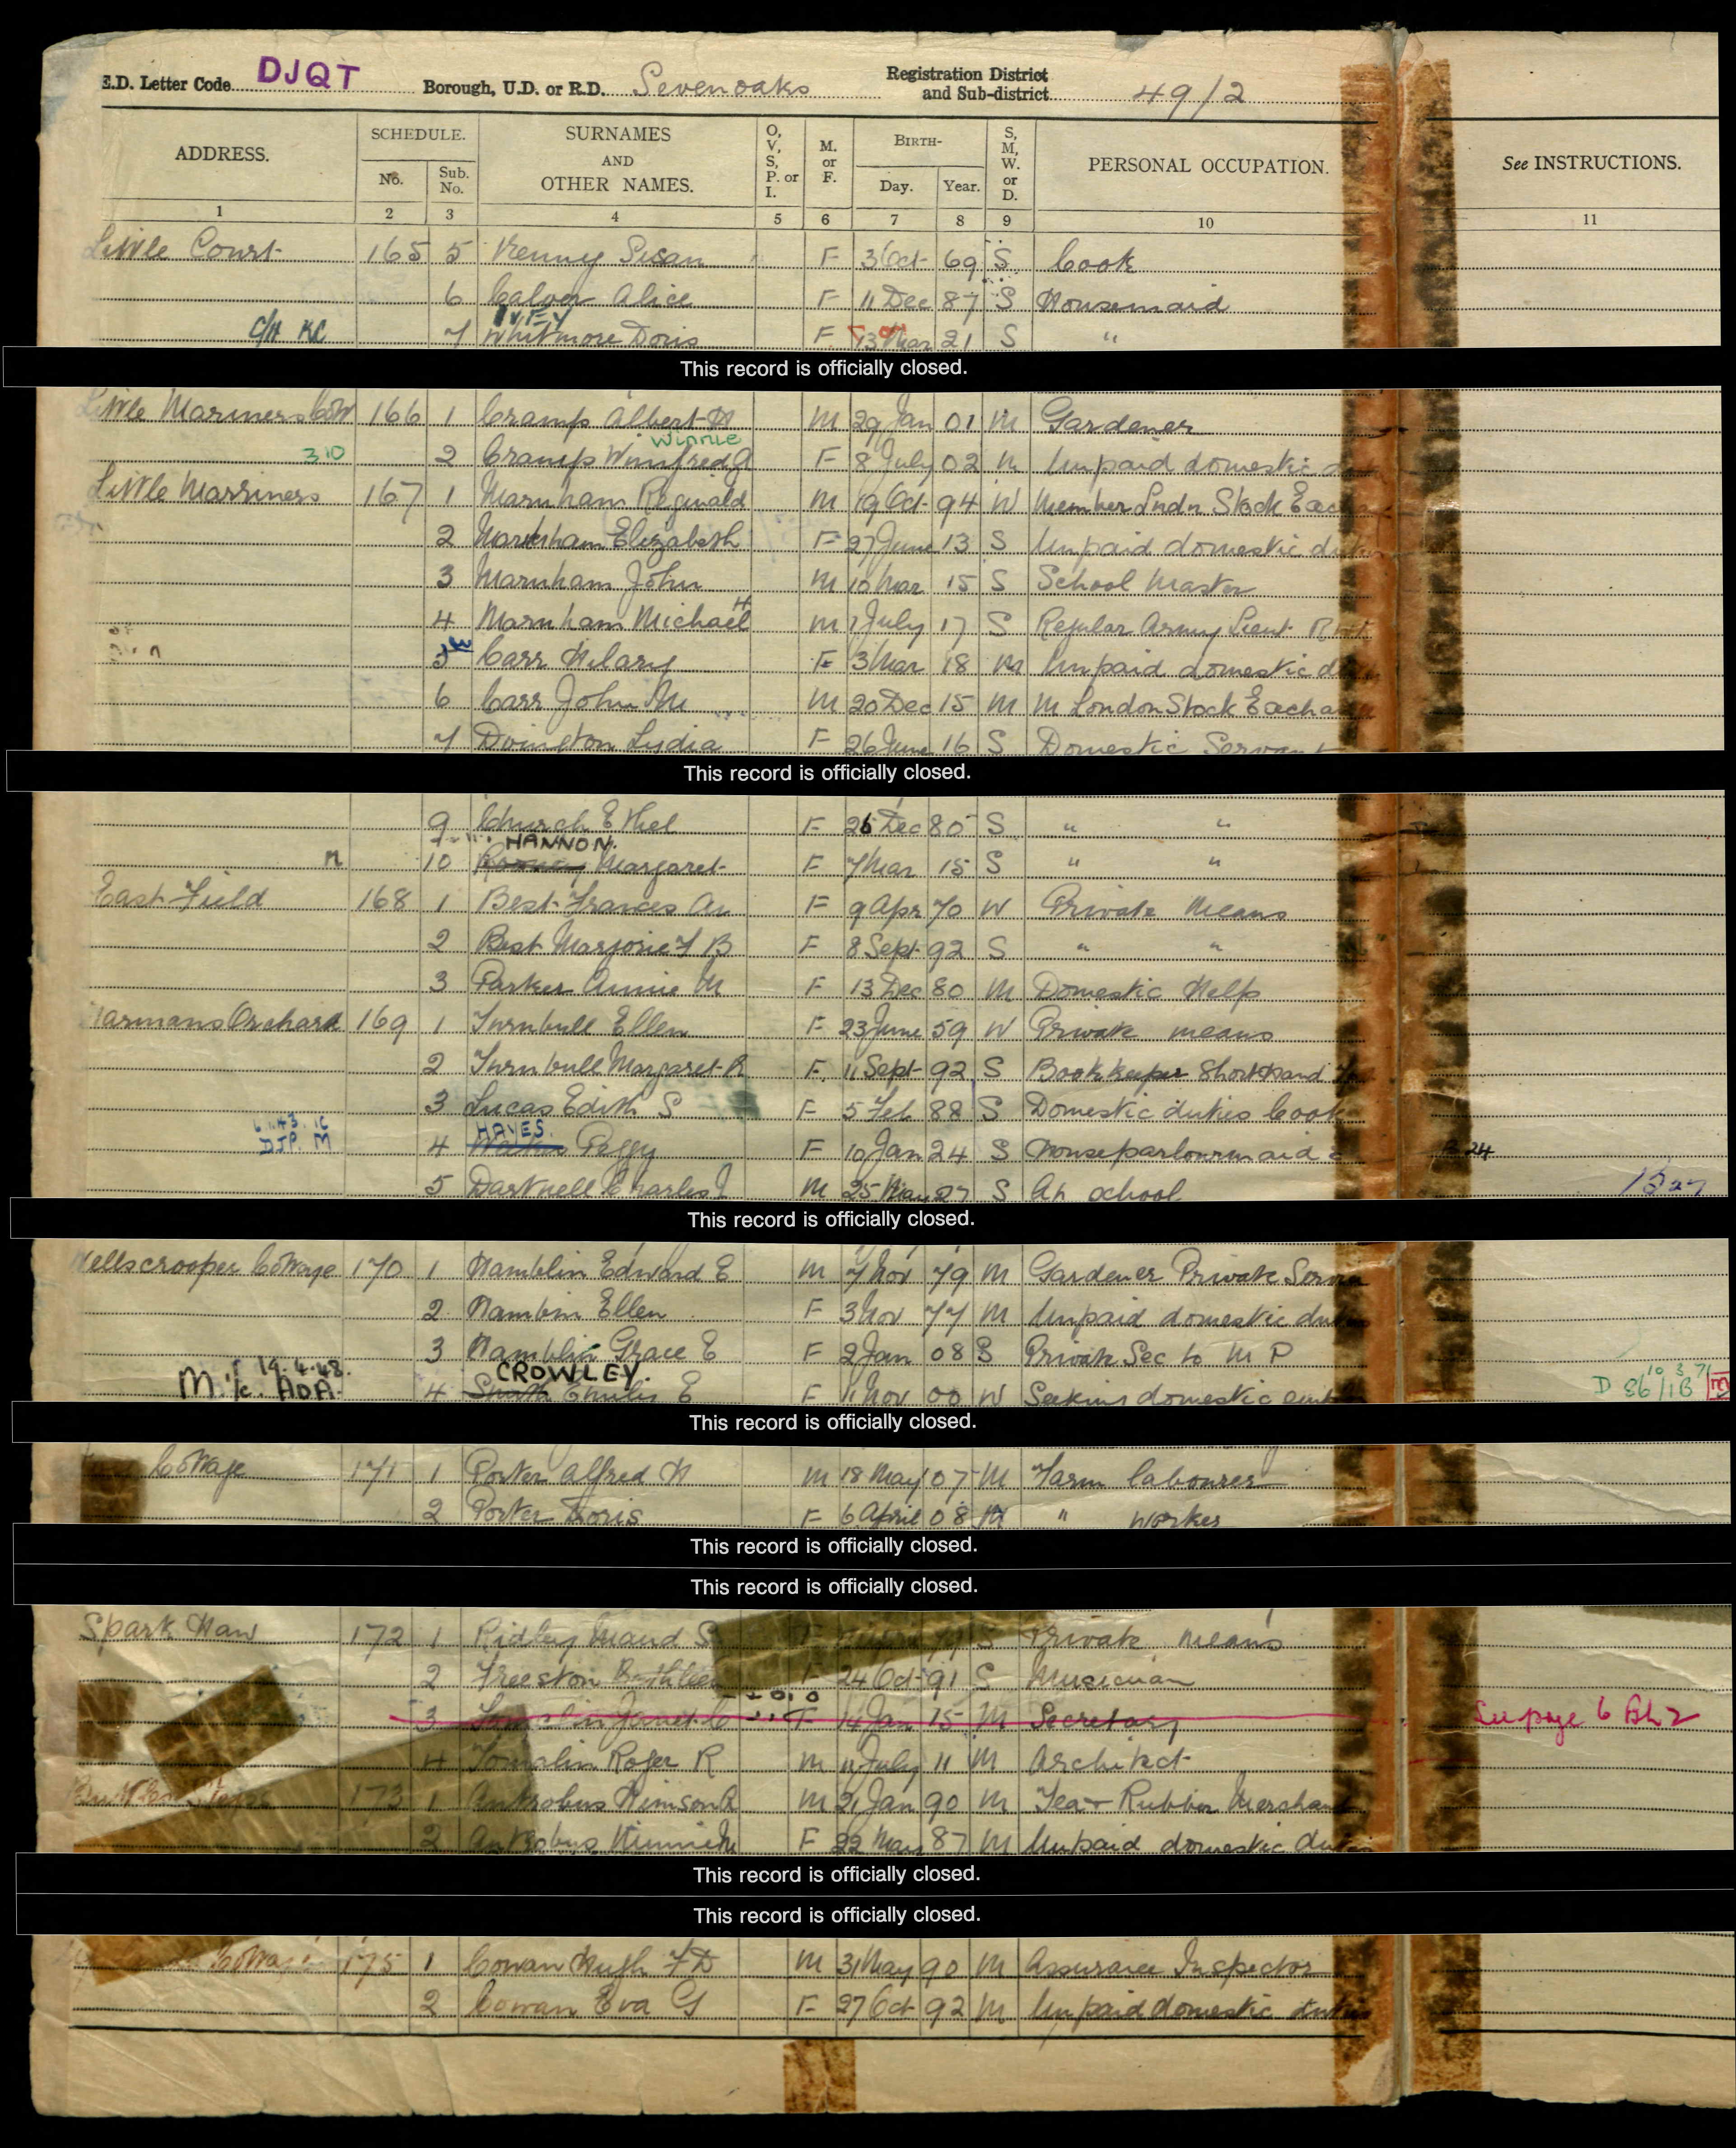 E.D. Letter Code DJQT Borough, U.D. or R.D. Sevenoaks Registration District and Sub-district 49/2
ADDRESS. SCHEDULE. No. Sub. No. SURNAMES AND OTHER NAMES. O, V, S, P. or I. M. or F. BIRTH- Day. Year. S, M, W. or D. PERSONAL OCCUPATION. See INSTRUCTIONS.
1 2 3 4 5 6 7 8 9 10 11
Little Court 165 5 Kenny Susan F 3 Oct 69 S Cook
6 Calver Alice F 11 Dec 87 S Housemaid
7 Whitmore Doris F 13 Mar 21 S "
This record is officially closed.
Little Mariners Cott 166 1 Cramp Albert H M 29 Jan 01 M Gardener
WINNIE
310 2 Cramp Winifred G F 8 July 02 M Unpaid domestic
Little Marriners 167 1 Marnham Reginald M 19 Oct 94 W Member Lndn Stock Exch
2 Marnham Elizabeth F 27 June 13 S Unpaid domestic duties
3 Marnham John M 10 Mar 15 S School Master
4 Marnham Michael H M 1 July 17 S Regular Army Lieut
5 Carr Hilary F 3 Mar 18 M Unpaid domestic d
6 Carr John M M 20 Dec 15 M M London Stock Exchange
7 Doington Lydia F 26 June 16 S Domestic Servant
This record is officially closed.
9 Church Ethel F 26 Dec 80 S " "
HANNON.
M 10 Margaret F 7 Mar 15 S " "
East Field 168 1 Best Frances F 9 Apr 70 W Private Means
2 Best Marjorie F B F 8 Sept 92 S " "
3 Parker Annie M F 13 Dec 80 M Domestic Help
Harmans Orchard 169 1 Turnbull Ellen F 23 June 59 W Private means
2 Turnbull Margaret R F 11 Sept 92 S Bookkeeper Shorthand
3 Lucas Edith S F 5 Feb 88 S Domestic duties Cook
HAYES.
4 Peggy F 10 Jan 24 S Houseparlourmaid 24
5 Dartnell Charles J M 25 May 27 S At School
This record is officially closed.
Wellscrooper Cottage 170 1 Hamblin Edward E M 7 Nov 79 M Gardener Private Service
2 Hamblin Ellen F 3 Nov 77 M Unpaid domestic duties
3 Hamblin Grace E F 2 Jan 08 S Private Sec to M P
19.4.48. CROWLEY.
4 Smith Emilie E F 11 Nov 00 W Seeking domestic
This record is officially closed.
Cottage 171 1 Porter Alfred H M 18 May 07 M Farm labourer
2 Porter Doris F 6 April 08 M " worker
This record is officially closed.
This record is officially closed.
Spark Haw 172 1 Ridley Maud S F S Private means
2 Freeston Kathleen F 24 Oct 91 S Musician
3 Tomalin Janet C F 14 Jan 15 M Secretary See page 6
4 Tomalin Roger R M 11 July 11 M Architect
173 1 Antrobus Kimson R M 21 Jan 90 M Tea & Rubber Merchant
2 Antrobus Minnie M F 22 May 87 M Unpaid domestic duties
This record is officially closed.
This record is officially closed.
Cottage 175 1 Cowan Hugh F D M 31 May 90 M Assurance Inspector
2 Cowan Eva G F 27 Oct 92 M Unpaid domestic duties